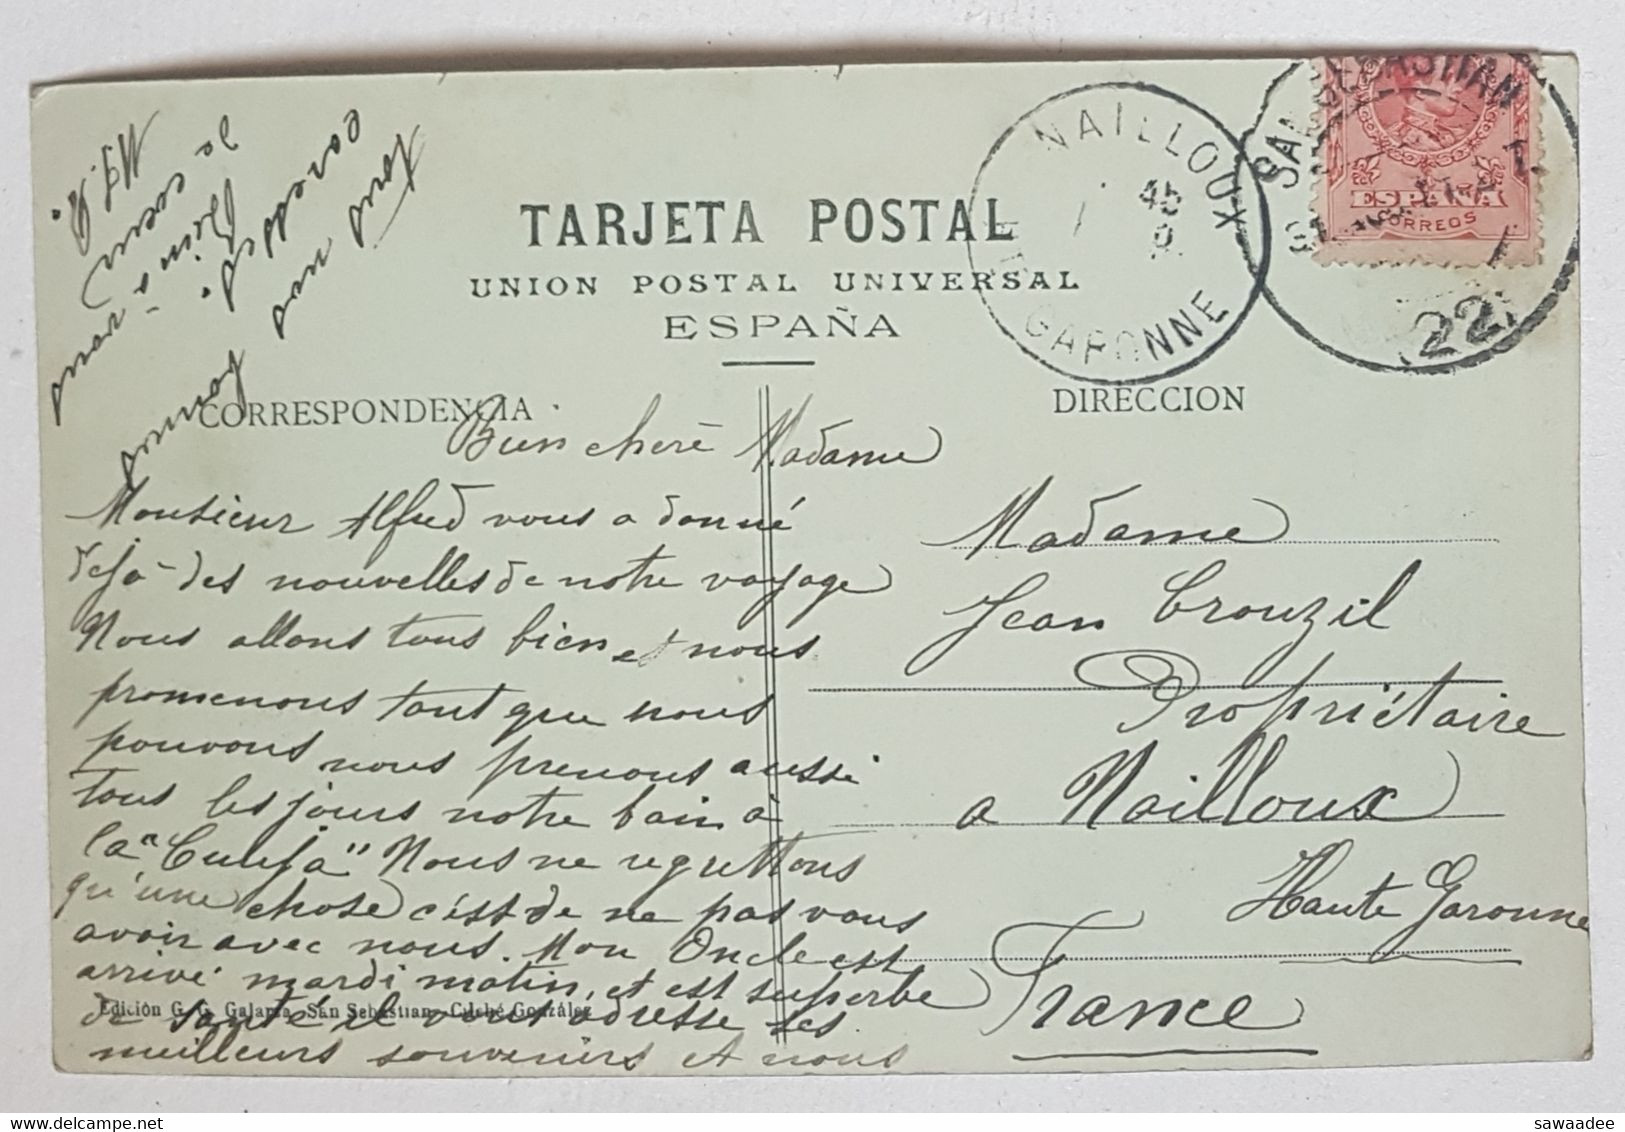 TARJETA POSTAL
UNION POSTAL UNIVERSAL
ESPAÑA
NAILLOUX
GARONNE
SAN SEBASTIAN
22
ESPAÑA
CORREOS
CORRESPONDENCIA
DIRECCION
Bien chère Madame
Monsieur Alfred vous a donné
déjà des nouvelles de notre voyage
Nous allons tous bien et nous
promenons tout que nous
pouvons nous prenons aussi
tous les jours notre bain à
la "
" Nous ne regrettons
qu'une chose c'est de ne pas vous
avoir avec nous. Mon Oncle est
arrivé mardi matin, et est superbe
de santé il vous adresse ses
meilleurs souvenirs et nous
tous nos
Bien à vous
Madame
Jean Crouzil
Propriétaire
a Nailloux
Haute Garonne
France
Edición G. G. Galarza San Sebastian - Cliché González
sawaadee